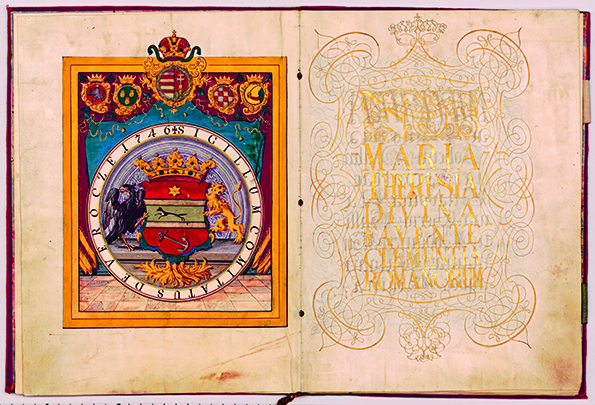 SIGILLUM COMITATUS DE VEROCZE 1746
MARIA
THERESIA
DIVINA
FAVENTE
CLEMENTIA
ROMANORUM